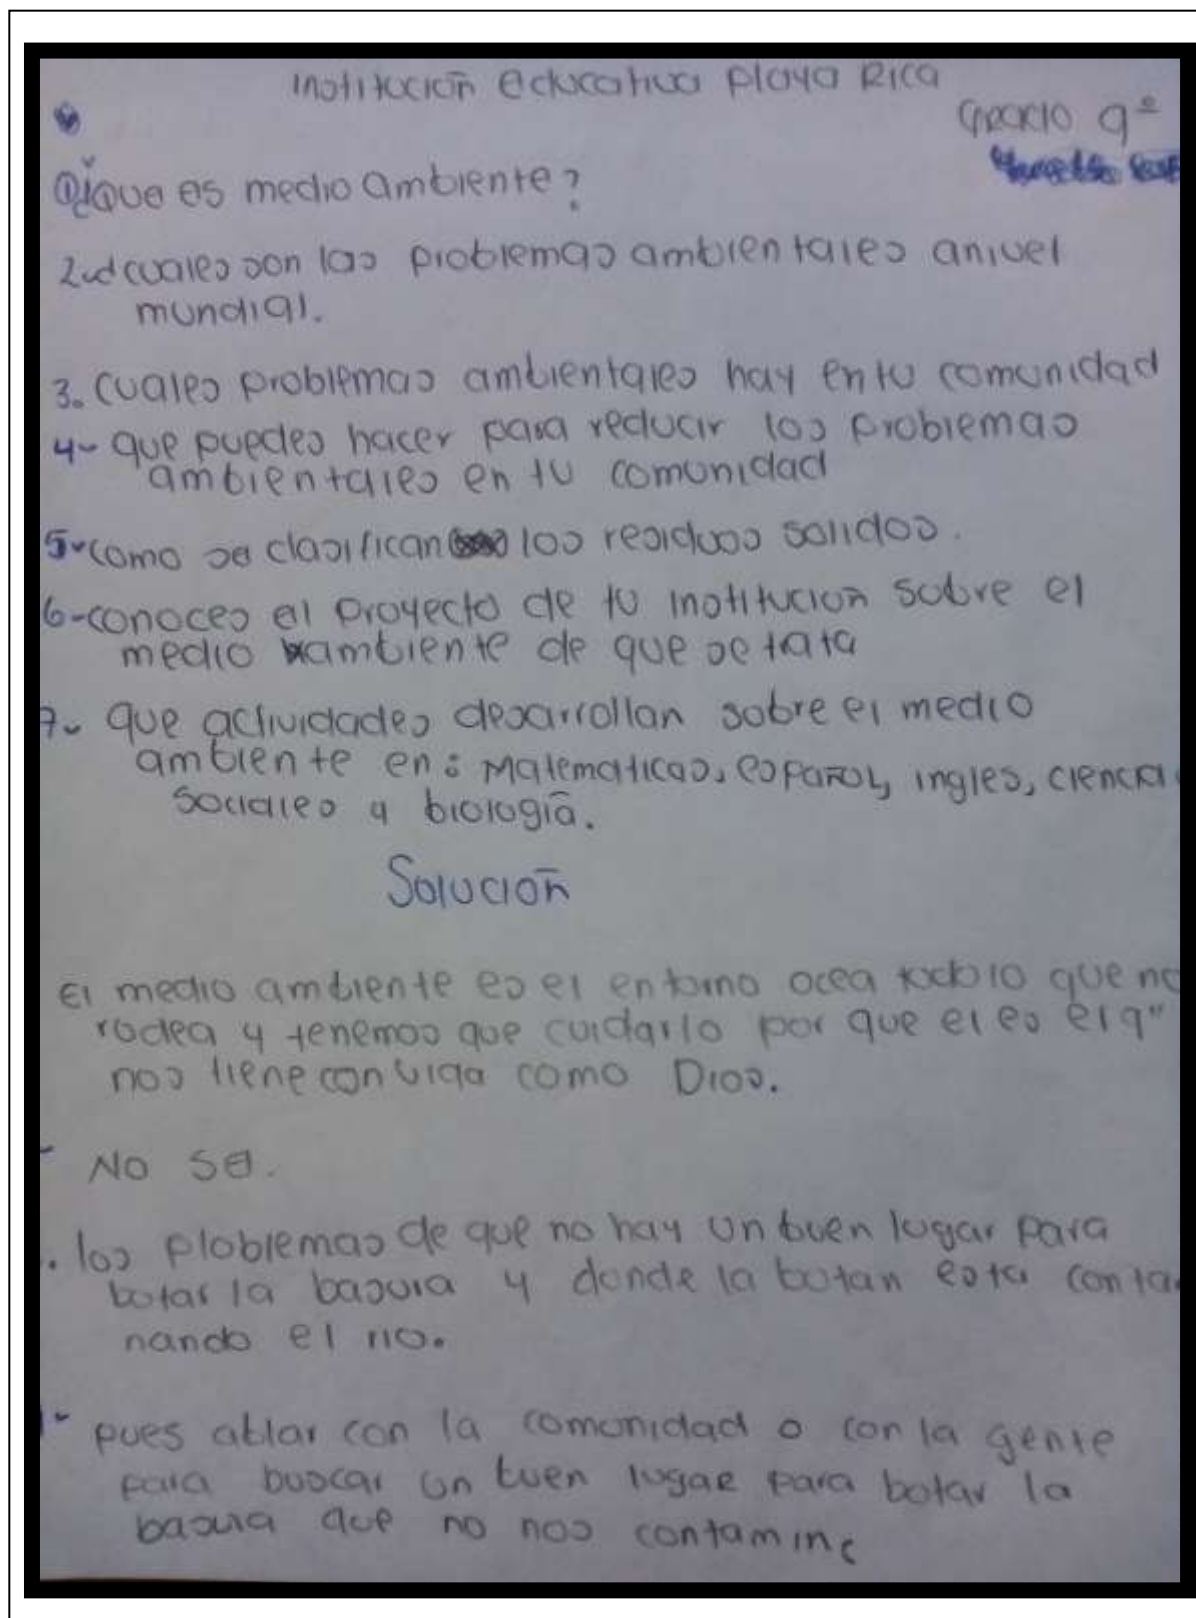 Institución Educativa Playa Rica
Grado 9º
1¿Que es medio ambiente?
2-¿cuales son los problemas ambientales anivel
mundial.
3. Cuales problemas ambientales hay en tu comunidad
4- que puedes hacer para reducir los problemas
ambientales en tu comunidad
5-como se clasifican los residuos solidos.
6-conoces el proyecto de tu institución sobre el
medio ambiente de que se trata
7- que actividades desarrollan sobre el medio
ambiente en: Matematicas, español, ingles, ciencia
sociales y biología.
Solución
El medio ambiente es el entorno ocea todo lo que no
rodea y tenemos que cuidarlo por que el es el q"
nos tiene con vida como Dios.
- No se.
. los ploblemas de que no hay un buen lugar para
botar la basura y donde la botan esta conta
nando el rio.
- pues ablar con la comunidad o con la gente
para buscar un buen lugar para botar la
basura que no nos contamine